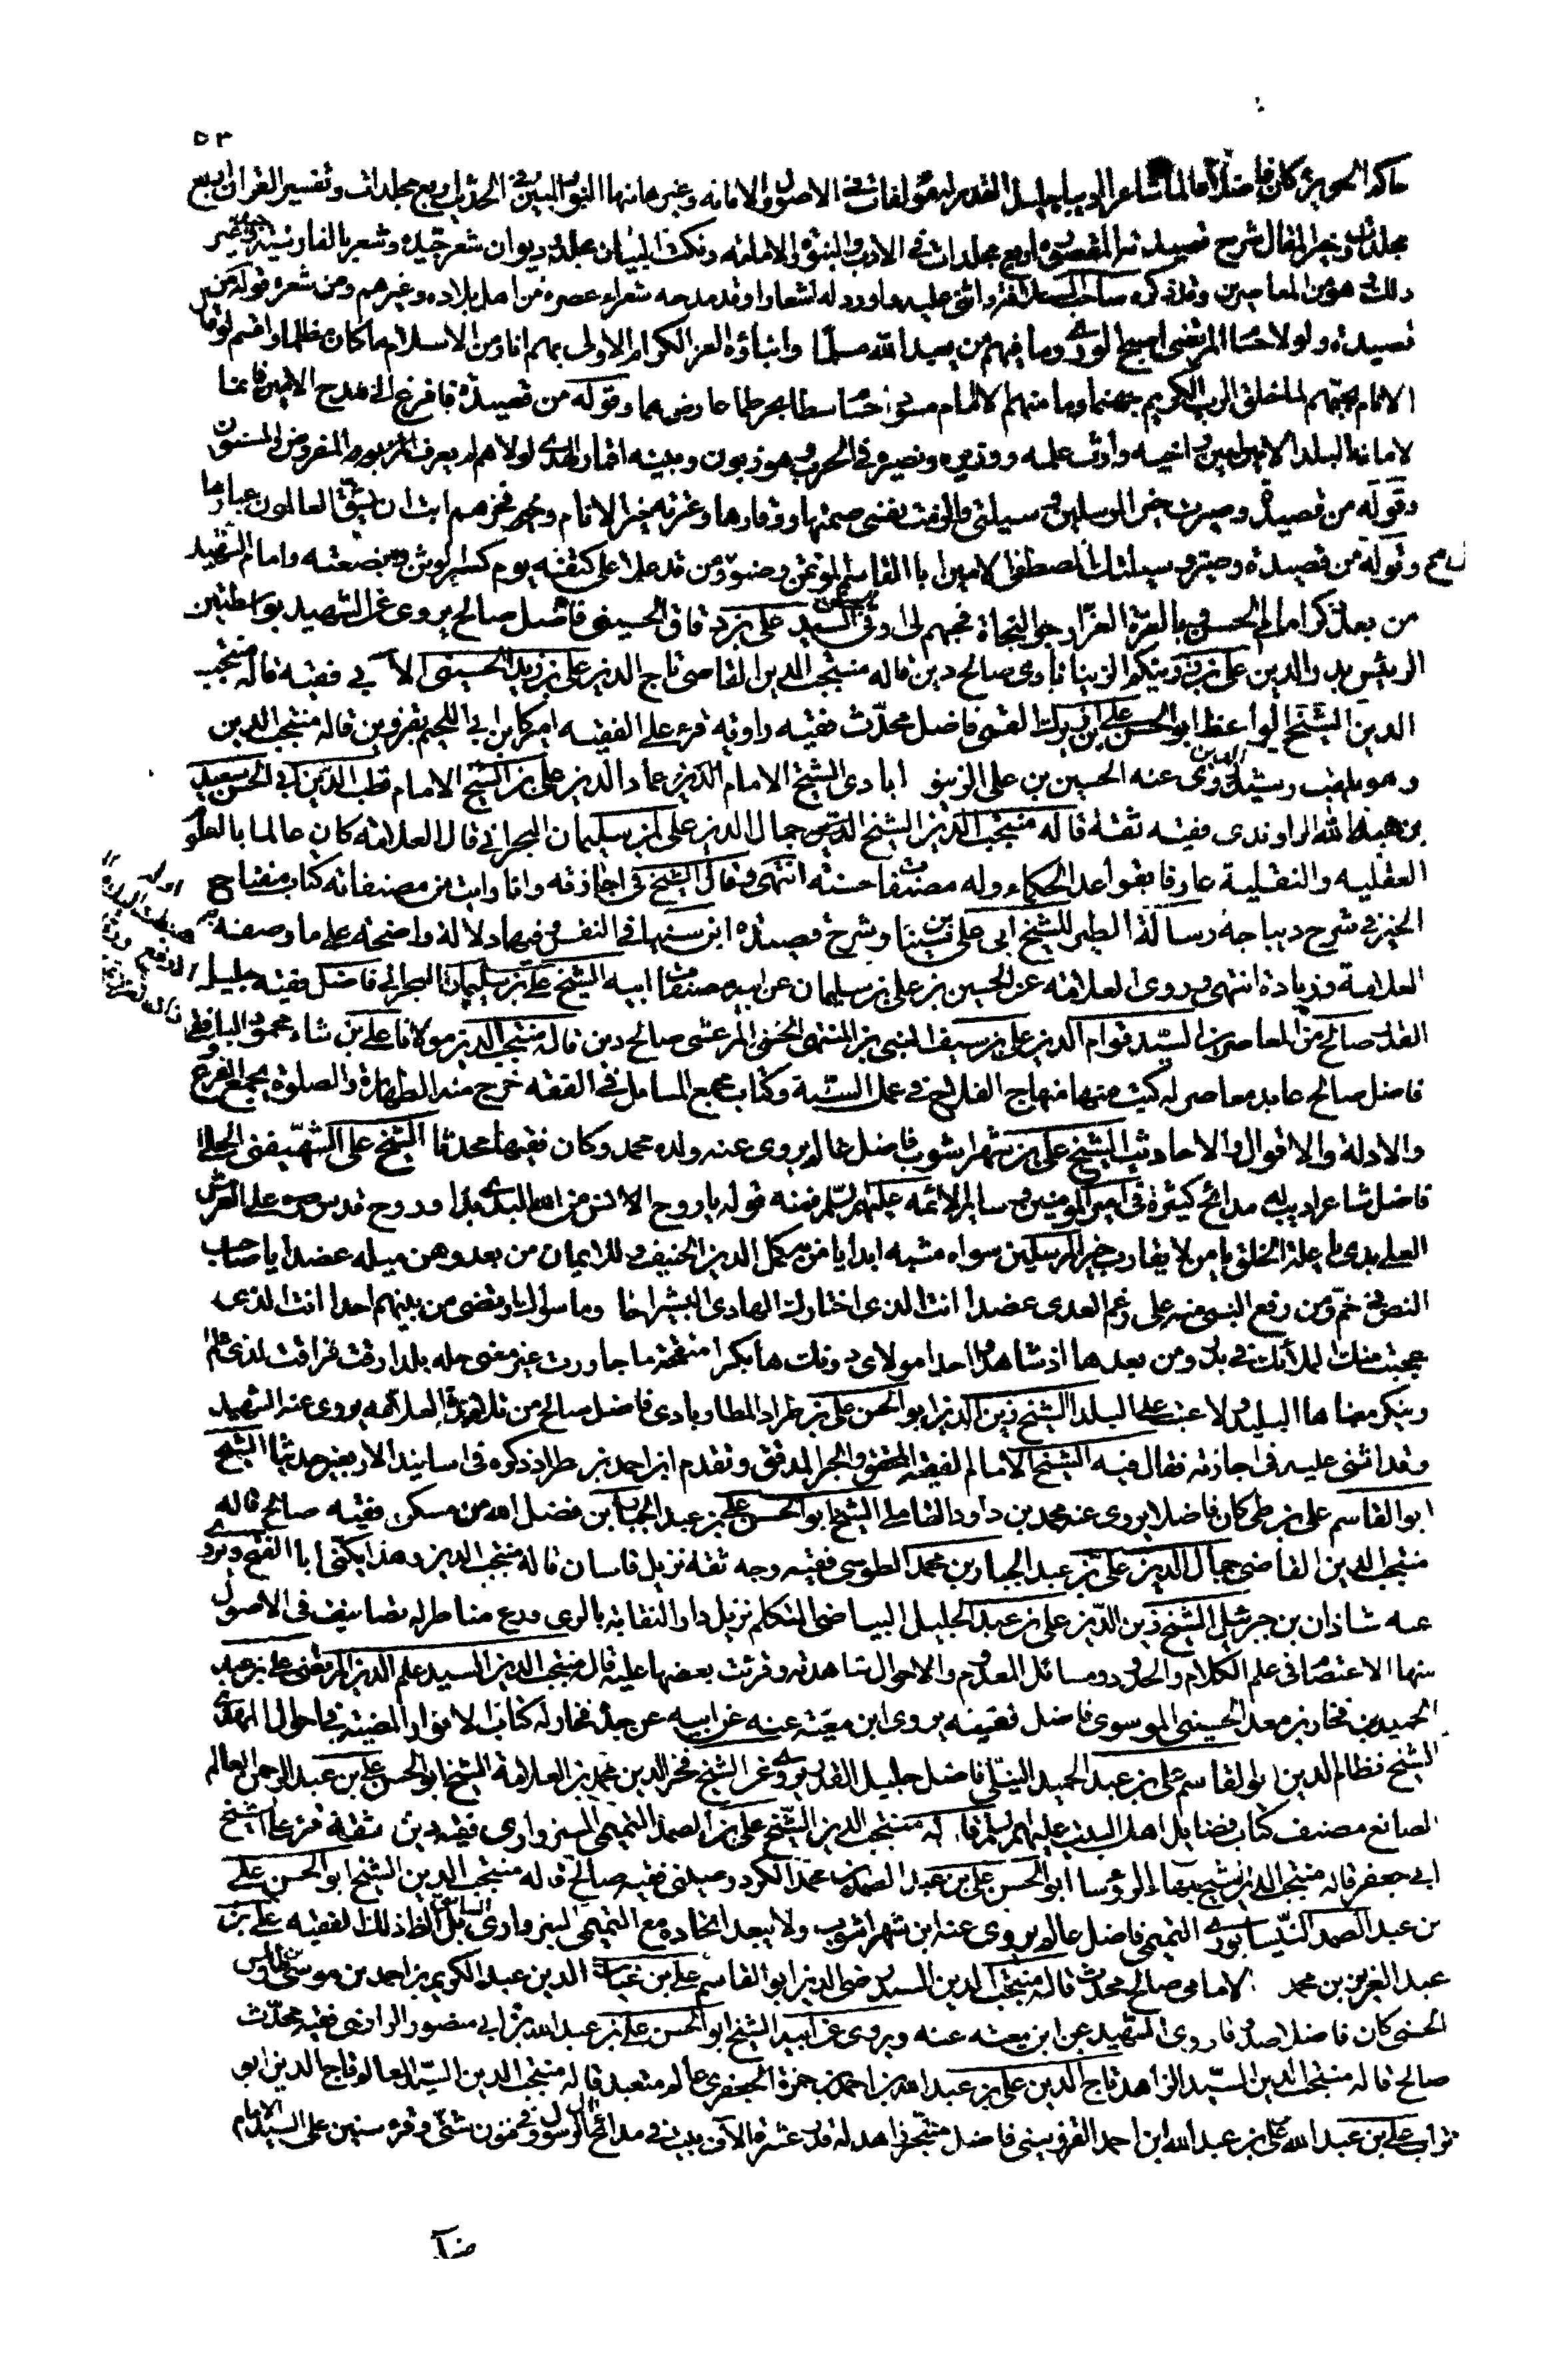 ٥٣
حاكم الحويزة كان فاضلا عالما شاعرا اديبا جليل القدر له مؤلفات في الاصول والامامة وغيرها منها النور المبين في الحديث اربع مجلدات وتفسير القران اربع
مجلدات وخير المقال شرح قصيدته المقصورة اربع مجلدات في الادب والنبوة والامامة ونكت البيان مجلد وديوان شعر جيد وشعر بالفارسية وغير
ذلك وهو من المعاصرين وقد ذكره صاحب السلافة واثنى عليه واورد له اشعارا وقد مدحه شعراء عصره من اهل بلاده وغيرهم ومن شعره قوله من
قصيدة ولولا حسام المرتضى اصبح الورى وما فيهم من يعبد الله مسلما وابناؤه الغر الكرام الاولى بهم انار من الاسلام ما كان مظلما واقسم لو قال
الانام بحبهم لما خلق الرب الكريم جهنما وما منهم الا امام مسود حسام سطا بحر طما عارض هما وقوله من قصيدة فافرغ الى مدح الامين فانما
لامانه البلد الامين امين اخيه وارث علمه ووزيره ونصيره في الحرب وهو زبون وبنيه اقمار الهدى لولاهم لم يعرف المفروض والمسنون
وقوله من قصيدة وصيرت خير المرسلين وسيلتي والزمت نفسي صمتها ووقارها وعترته خير الانام وفخرهم ابت ان يشق العالمون غبارها
وقوله من قصيدة وصيرت وسيلتك المصطفى الامين ابا القاسم المؤتمن وصنوه ومن قد علا على كتفه يوم كسر الوثن وبضعته وامام الشهيد
من بعد ذكر امام الحسن وبالعترة الغر ارجو النجاة فحبهم لي اوفى السيد علي بن دقاق الحسيني فاضل صالح يروي عن الشهيد بواسطتين
الرئيس بدر الدين علي بن زرينكمر الزينابادي صالح دين قاله منتجب الدين القاضي تاج الدين علي بن زيد الحسيني الابي فقيه قاله منتجب
الدين الشيخ الواعظ ابو الحسن علي بن زيرك القمي فاضل محدث فقيه راوية قرء على الفقيه اميركا بن ابي اللجيم بقزوين قاله منتجب الدين
وهو يلقب رشيد الدين وروى عنه الحسين بن علي الزينوابادي الشيخ الامام الدين عماد الدين علي بن الشيخ الامام قطب الدين ابي الحسين سعيد
بن هبة الله الراوندي فقيه ثقة قاله منتجب الدين الشيخ جمال الدين علي بن سليمان البحراني قال العلامة كان عالما بالعلوم
العقلية والنقلية عارفا بقواعد الحكماء وله مصنفات حسنة انتهى وقال الشيخ في اجازته وانا رايت من مصنفاته كتاب مفتاح
الخير في شرح ديباجة رسالة الطير للشيخ ابي علي بن سينا وشرح قصيدة ابن سينا في النفس فيها دلالة واضحة على ما وصفه به
العلامة وزيادة انتهى وروى العلامة عن الحسين بن علي بن سليمان عن ابيه مصنفات ابيه الشيخ علي بن سليمان البحراني فاضل فقيه جليل
القدر صالح من المعاصرين السيد قوام الدين علي بن سيف النبي بن المنتهى الحسني المرعشي صالح دين قاله منتجب الدين مولانا علي بن شاه محمود البافقي
فاضل صالح عابد معاصر له كتب منها منهاج الفلاح في عمل السنة وكتاب مجمع المسائل في الفقه خرج منه الطهارة والصلوة يجمع الفروع
والادلة والاقوال والاحاديث الشيخ علي بن شهراشوب فاضل عالم يروي عنه ولده محمد وكان فقيها محدثا الشيخ علي الشهيفني الحلي
فاضل شاعر اديب له مدائح كثيرة في امير المؤمنين وسائر الائمة عليهم السلم فمنه قوله يا روح الانس من الله البدء بدا وروح قدس على العرش
العلي بدى يا علة الخلق يا من لا يقارب خير المرسلين سواه مشبه ابدا يا من به كمل الدين الحنيف وللايمان من بعد وهن ميله عضدا يا صاحب
النص في خم ومن رفع النبي منه على رغم العدى عضدا انت الذي اختارك الهادي البشير اخا وما سواك ارتضى من بينهم احدا انت الذي
عجبت منك الملائك في بدر ومن بعدها اذ شاهدوا احدا مولاي دونكها بكرا منقحة ما جاورت غير مغنى حلة بلدا رقت فراقت لذي علم
وينكر معناها البليد ولا عتب على البلدا الشيخ زين الدين ابو الحسن علي بن طراد المطارابادي فاضل صالح من تلامذة العلامة يروي عنه الشهيد
وقد اثنى عليه في اجازته فقال فيه الشيخ الامام الفقيه المحقق والحبر المدقق وتقدم ابن احمد بن طراد ذكره في اسانيد الاربعين حديثا الشيخ
ابو القاسم علي بن طي كان فاضلا يروي عنه محمد بن داود العاملي الشيخ ابو الحسن علي بن عبد الجبار بن فضل الله من مسكن فقيه صالح قاله
منتجب الدين القاضي جمال الدين علي بن عبد الجبار بن محمد الطوسي فقيه وجه ثقة نزيل قاسان قاله منتجب الدين وهذا يكنى ابا الفتح ويروي
عنه شاذان بن جبرئيل الشيخ زين الدين علي بن عبد الجليل البياضي المتكلم نزيل دار النقابة بالري ورع مناظر له تصانيف في الاصول
منها الاعتصام في علم الكلام والحدود ومسائل المعدوم والاحوال شاهدته وقرئت بعضها عليه قاله منتجب الدين السيد علم الدين المرتضى علي بن عبد
الحميد بن فخار بن معد الحسيني الموسوي فاضل فقيه يروي ابن معية عنه عن ابيه عن جده فخار له كتاب الانوار المضيئة في احوال المهدي
الشيخ نظام الدين ابو القاسم علي بن عبد الحميد النيلي فاضل جليل القدر يروي عن الشيخ فخر الدين محمد بن العلامة الشيخ ابو الحسن علي بن عبد الرحمن العالم
الصانع مصنف كتاب فضايل اهل البيت عليهم السلم قاله منتجب الدين الشيخ علي بن عبد الصمد التميمي السبزواري فقيه دين ثقة قرء على الشيخ
ابي جعفر قاله منتجب الدين الشيخ بهاء الرؤسا ابو الحسن علي بن عبد الصمد بن محمد الكردوصيني فقيه صالح قاله منتجب الدين الشيخ ابو الحسن علي
بن عبد الصمد النيسابوري التميمي فاضل عالم يروي عنه ابن شهراشوب ولا يبعد اتحاده مع التميمي السبزواري السابق بل الظاهر ذلك الفقيه علي بن
عبد العزيز بن محمد الامامي صالح محدث قاله منتجب الدين السيد رضي الدين ابو القاسم علي بن غياث الدين عبد الكريم بن احمد بن موسى بن طاوس
الحسني كان فاضلا صدوقا روى الشهيد عن ابن معية عنه ويروي عن ابيه الشيخ ابو الحسن علي بن عبد الله بن ابي منصور الرازي فقيه محدث
صالح قاله منتجب الدين السيد الزاهد تاج الدين علي بن عبد الله بن احمد بن حمزة الجعفري عالم متعبد قاله منتجب الدين السيد العالم تاج الدين ابو
تراب علي بن عبد الله علي بن عبد الله ابن احمد القزويني فاضل متبحر زاهد له قدر عشرة الآف بيت في مدائح ال الرسول وفي فنون شتى وقرء سنين على السيد الامام